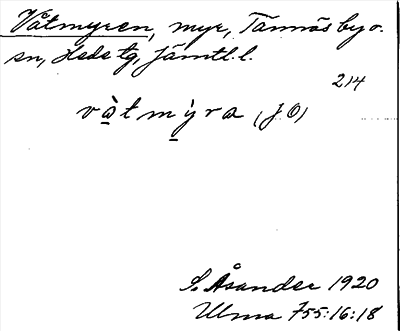 Våtmyren, myr, Tännäs by o.
sn, Hede tg, Jämtl. l.
214
våtmyra (JÖ)
S. Åsander 1920
Ulma 755:16:18